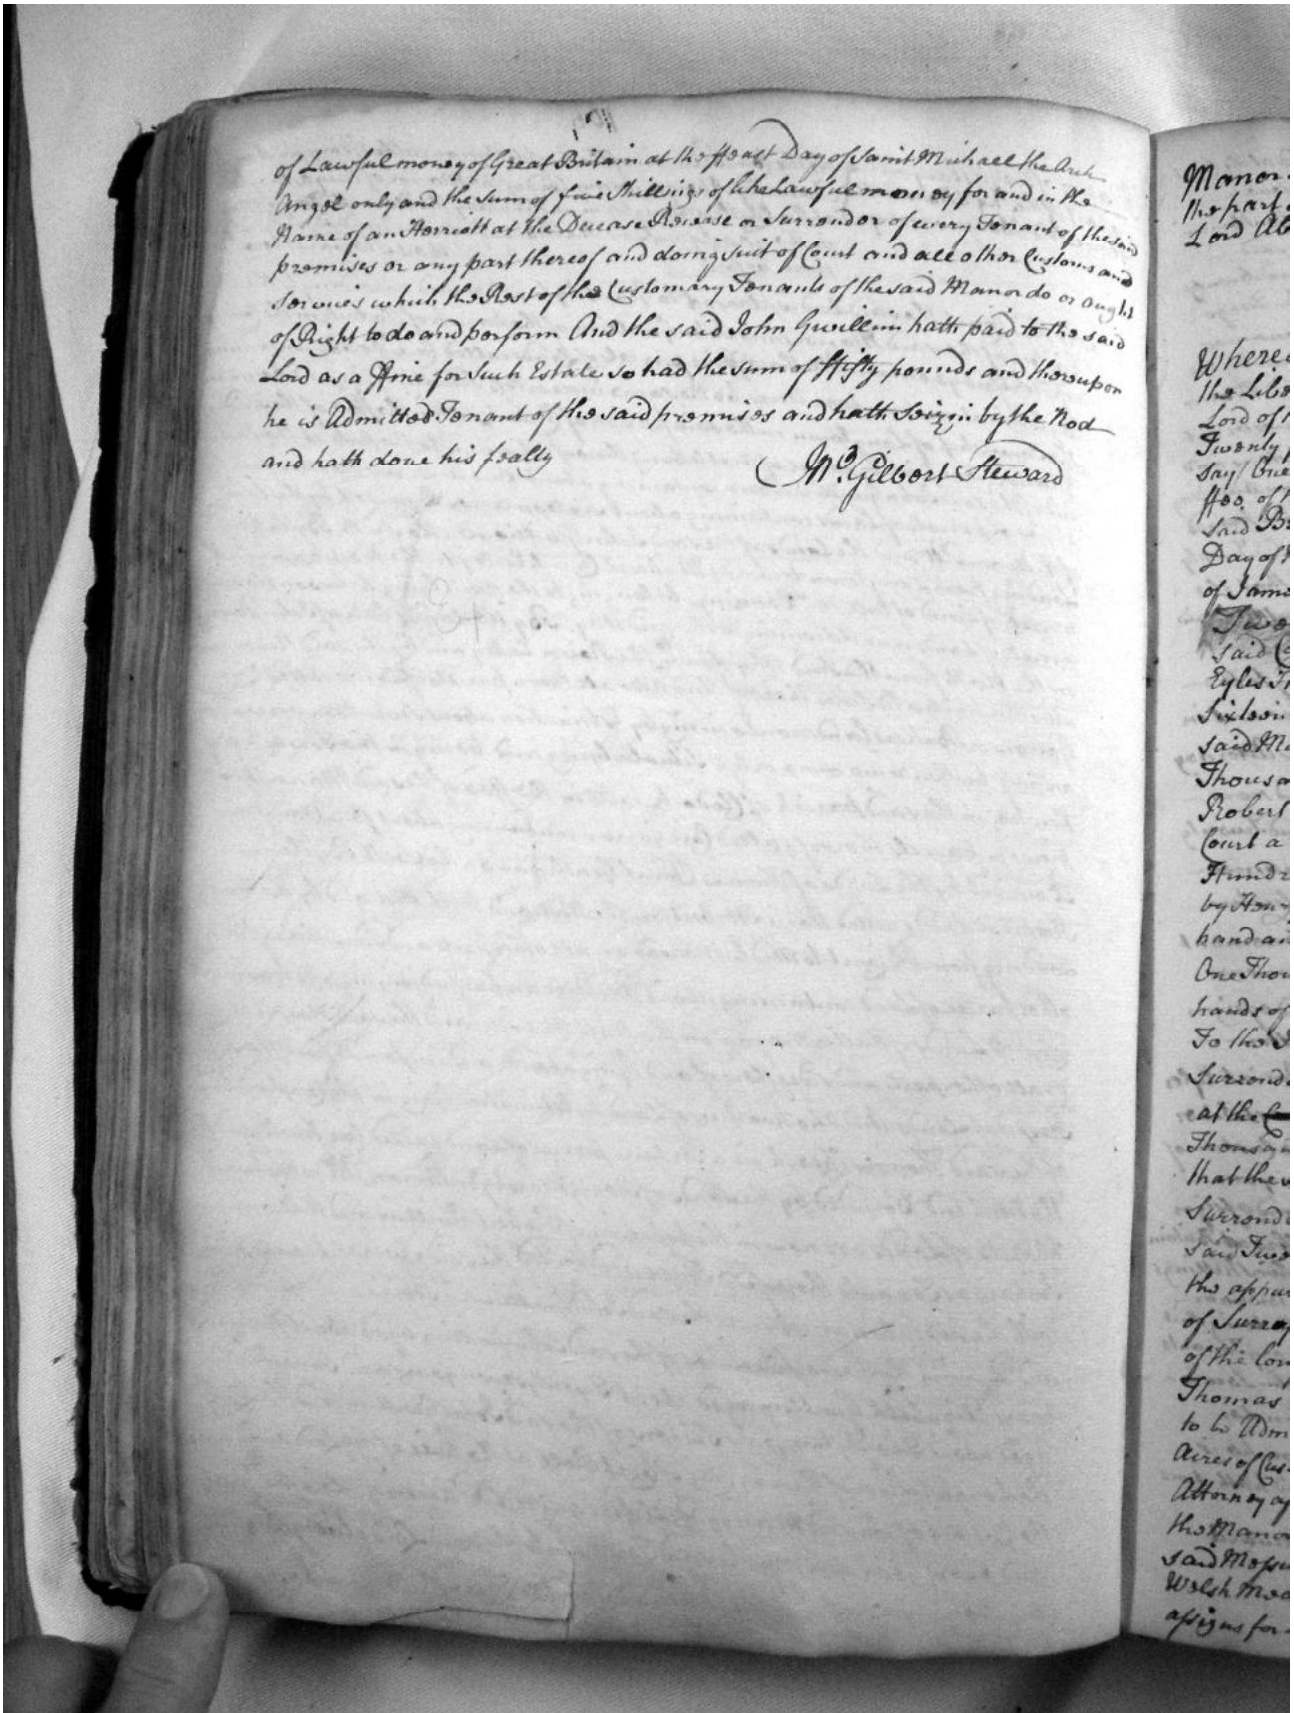 of Lawful money of Great Britain at the ffeast Day of Saint Michaell the Arch
Angel only and the sum of five Shillings of like Lawful money for and in the
Name of an Herriott at the Decease Release or Surrender of every Tenant of the said
premises or any part thereof and doing suit of Court and all other Customs and
services which the Rest of the Customary Tenants of the said Manor do or ought
of Right to do and perform And the said John Gwillim hath paid to the said
Lord as a ffine for such Estate so had the sum of ffifty pounds and thereupon
he is Admitted Tenant of the said premises and hath Seizin by the Rod
and hath done his fealty
Gilbert Steward
Manor
the part
Lord Ab
Where
the Libe
Lord of
Twenty
say One
ffee of
said B
Day of
of Jame
Two
said
Eyles
Sixteen
said M
Thousa
Robert
Court a
Hundr
by Hen
hand an
One Thou
hands of
To the
Surrend
at the
Thousan
that the
Surrend
said Two
the appur
of Surrey
of the
Thomas
to be Adm
Acres of Cus
Attorney
the Mano
said Messu
Welsh Mea
assigns for